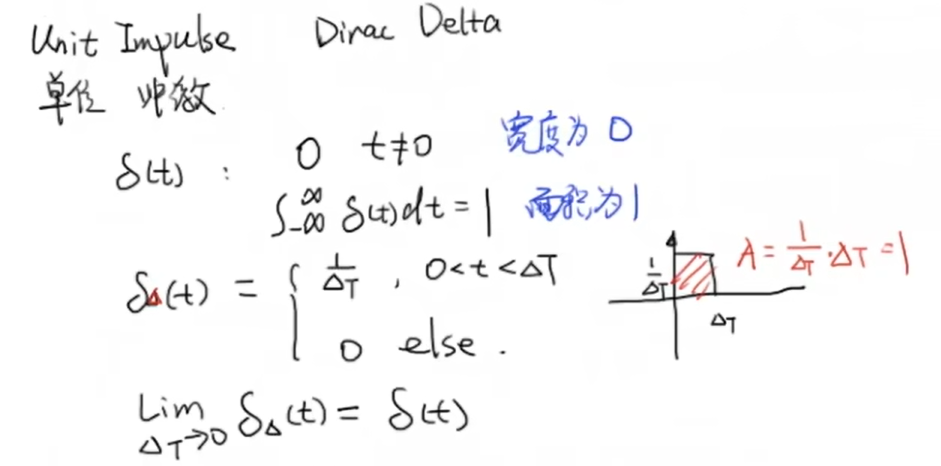 Unit Impulse Dirac Delta
单位 冲激
δ(t) : 0 t≠0 宽度为 0
∫_{-∞}^{∞} δ(t)dt = 1 面积为1
δ_Δ(t) = { 1/ΔT , 0<t<ΔT
0 else .
1/ΔT
ΔT
A = 1/ΔT · ΔT = 1
Lim_{ΔT→0} δ_Δ(t) = δ(t)